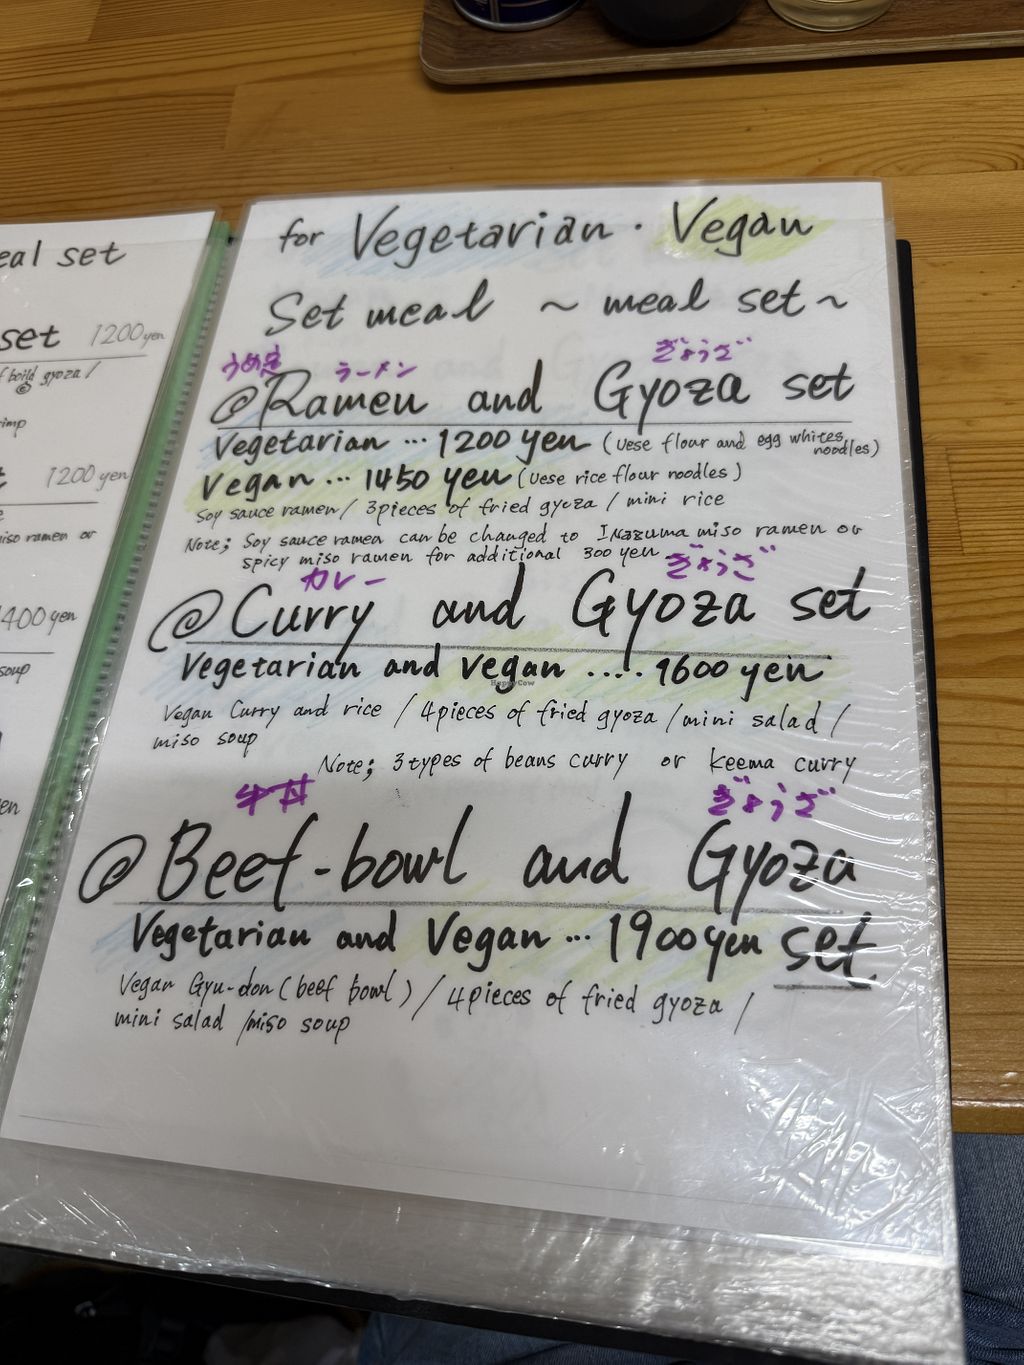 eal set
set 1200yen
f boild gyoza /
imp
t 1200yen
iso ramen or
1400yen
soup
en
for Vegetarian · Vegan
Set meal ~ meal set ~
ラーメン ぎょうざ
@Ramen and Gyoza set
Vegetarian ... 1200 yen (Uese flour and egg whites noodles)
Vegan ... 1450 yen (Uese rice flour noodles)
Soy sauce ramen / 3pieces of fried gyoza / mini rice
Note; Soy sauce ramen can be changed to Inazuma miso ramen or
spicy miso ramen for additional 300 yen
カレー ぎょうざ
@Curry and Gyoza set
Vegetarian and vegan ..... 1600 yen
HappyCow
Vegan Curry and rice / 4pieces of fried gyoza / mini salad /
miso soup
Note; 3types of beans curry or keema curry
牛丼 ぎょうざ
@Beef-bowl and Gyoza
Vegetarian and Vegan ... 1900yen set.
Vegan Gyu-don (beef bowl) / 4pieces of fried gyoza /
mini salad /miso soup